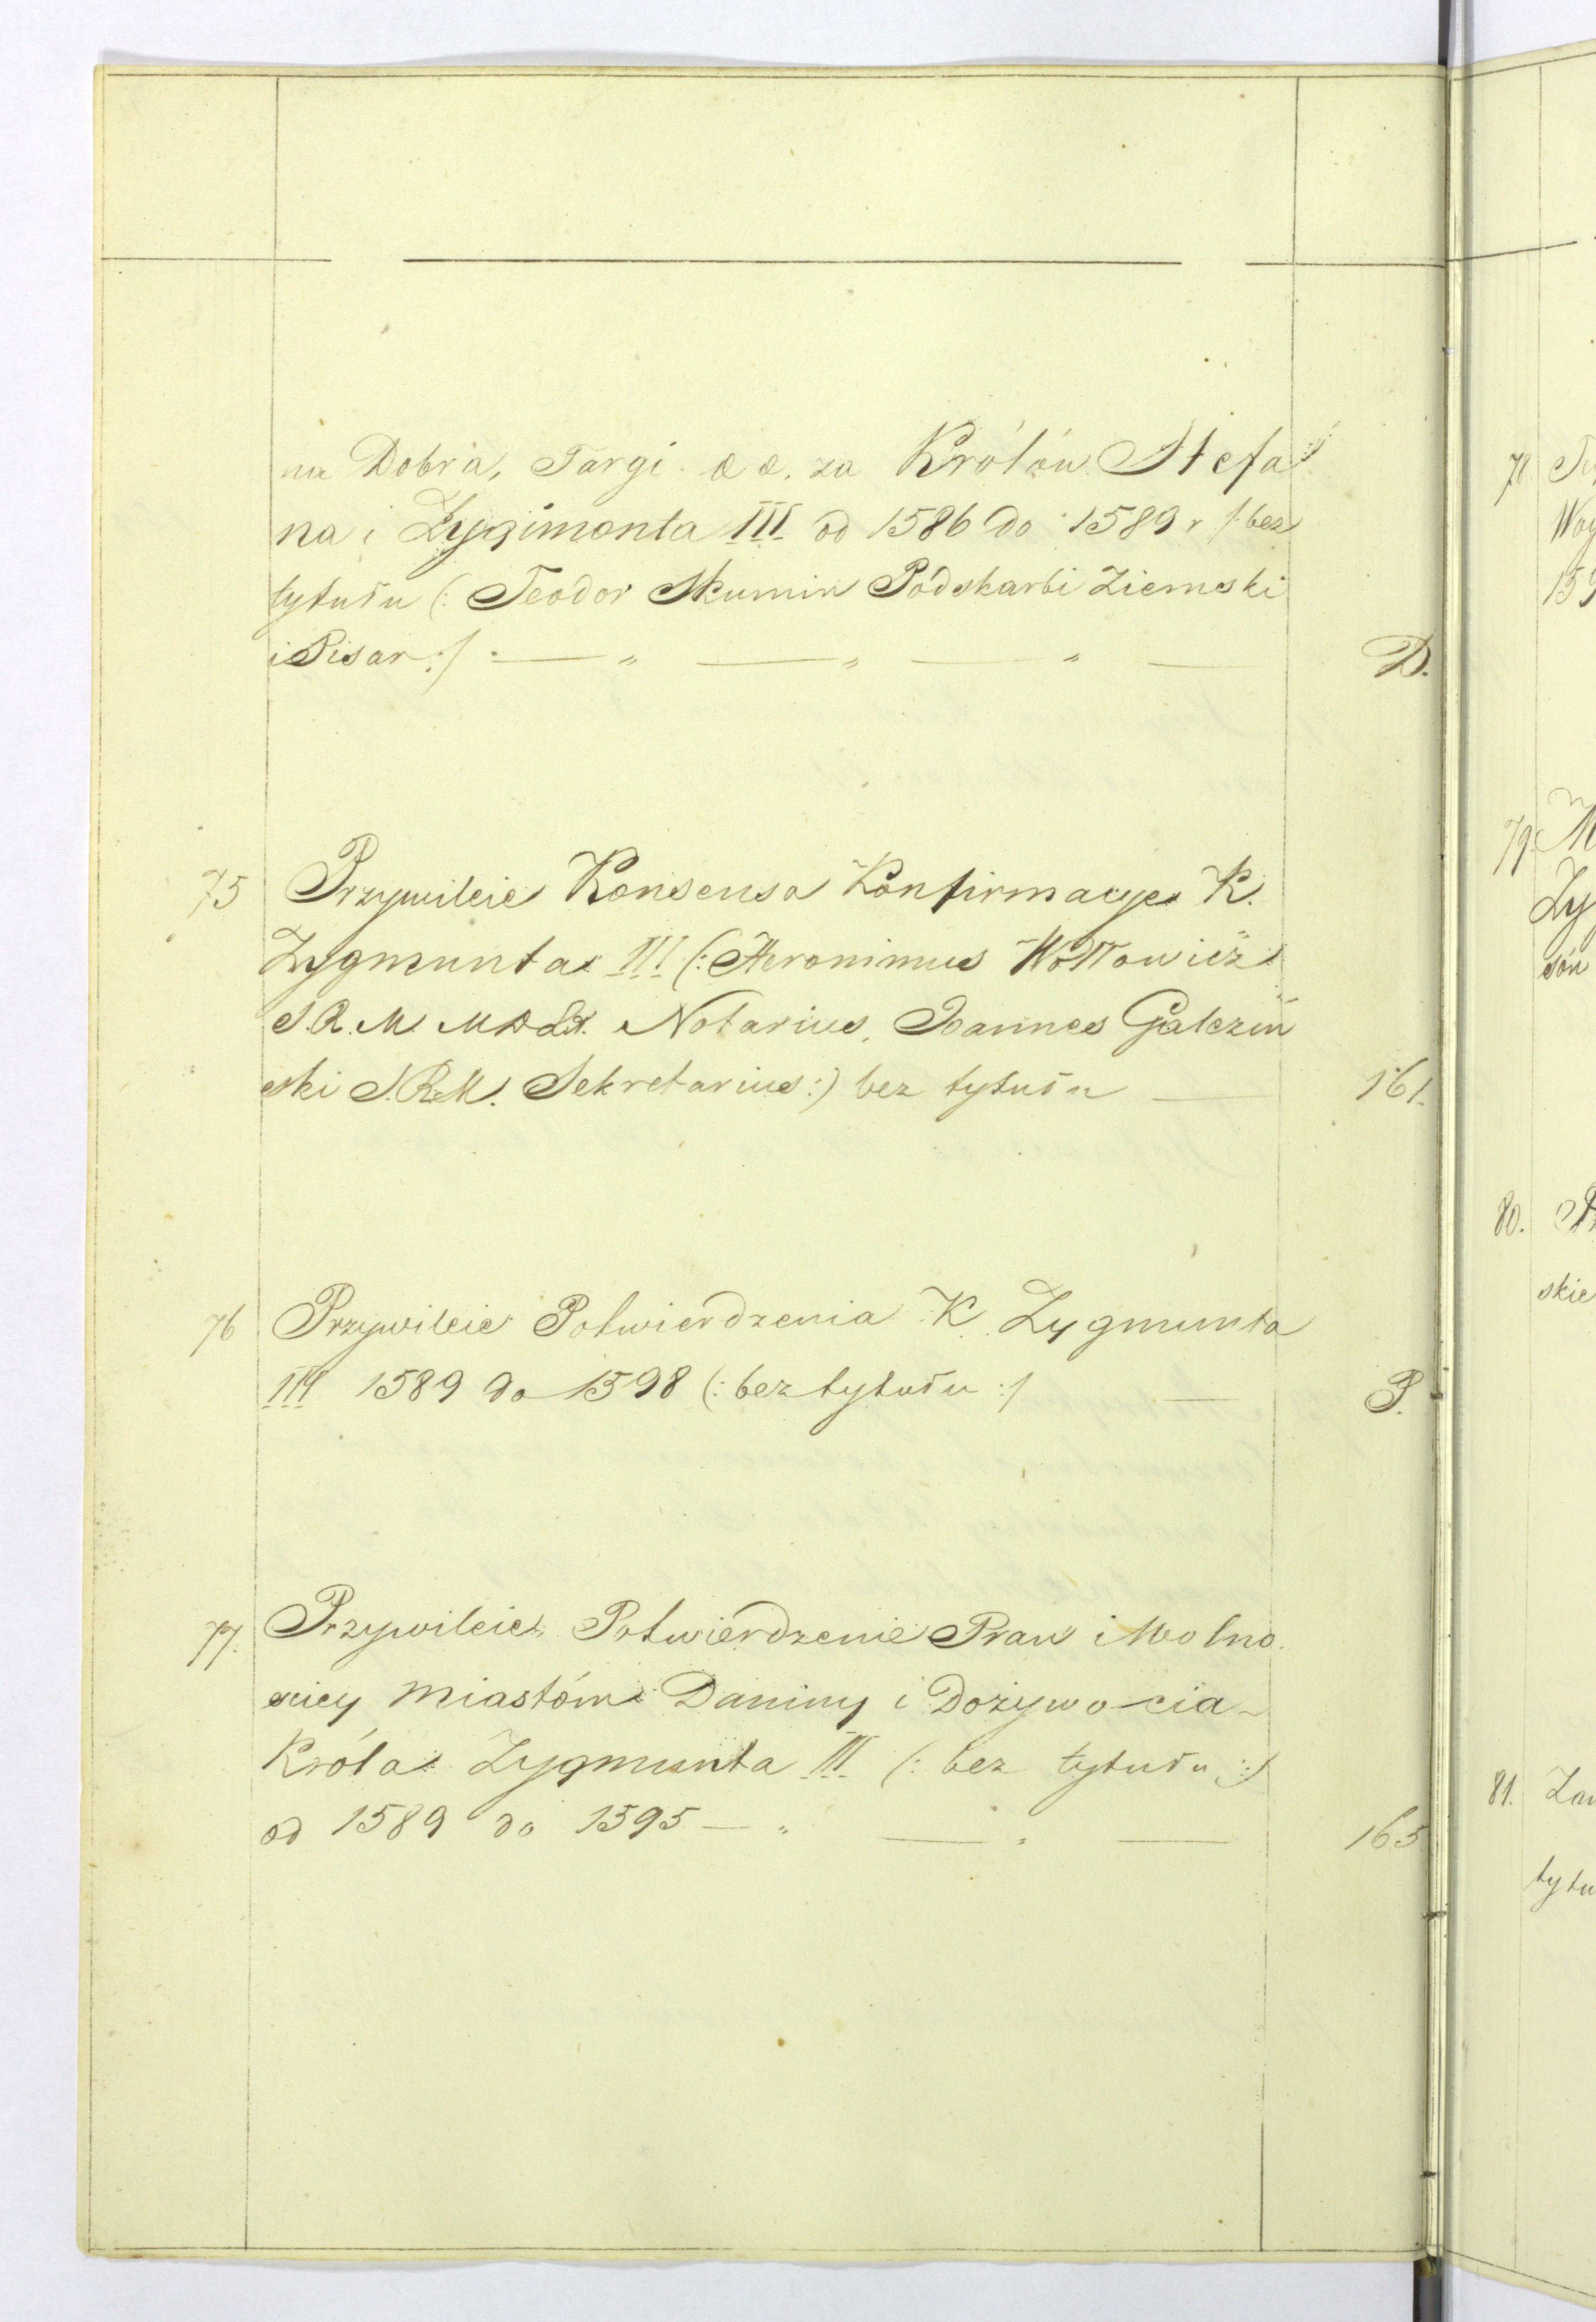 na Dobra, Targi & &. za Królów Stefa
na i Zygimonta III od 1586 do 1589 r /: bez
tytułu (: Teodor Skumin Podskarbi Ziemski
i Pisar :/ — " — " — " — D.
75 Przywileie Konsensa Konfirmacye K.
Zygmunta III (: Heronimus Wołłowicz
S.R.M. M.D.Lit. Notarius, Joannes Galczyń
ski S.R.M. Sekretarius :) bez tytułu — 161.
76 Przywileie Potwierdzenia K. Zygmunta
III 1589 do 1598 (: bez tytułu :/ — P.
77. Przywileie, Potwierdzenie Praw i Wolno
sciey Miastóm Daniny i Dożywocia
Króla Zygmunta III (: bez tytułu :/
od 1589 do 1595 — " — " — 165
78
Woy
159
79.
Zy
sów
80.
skie
81. Zar
tytu